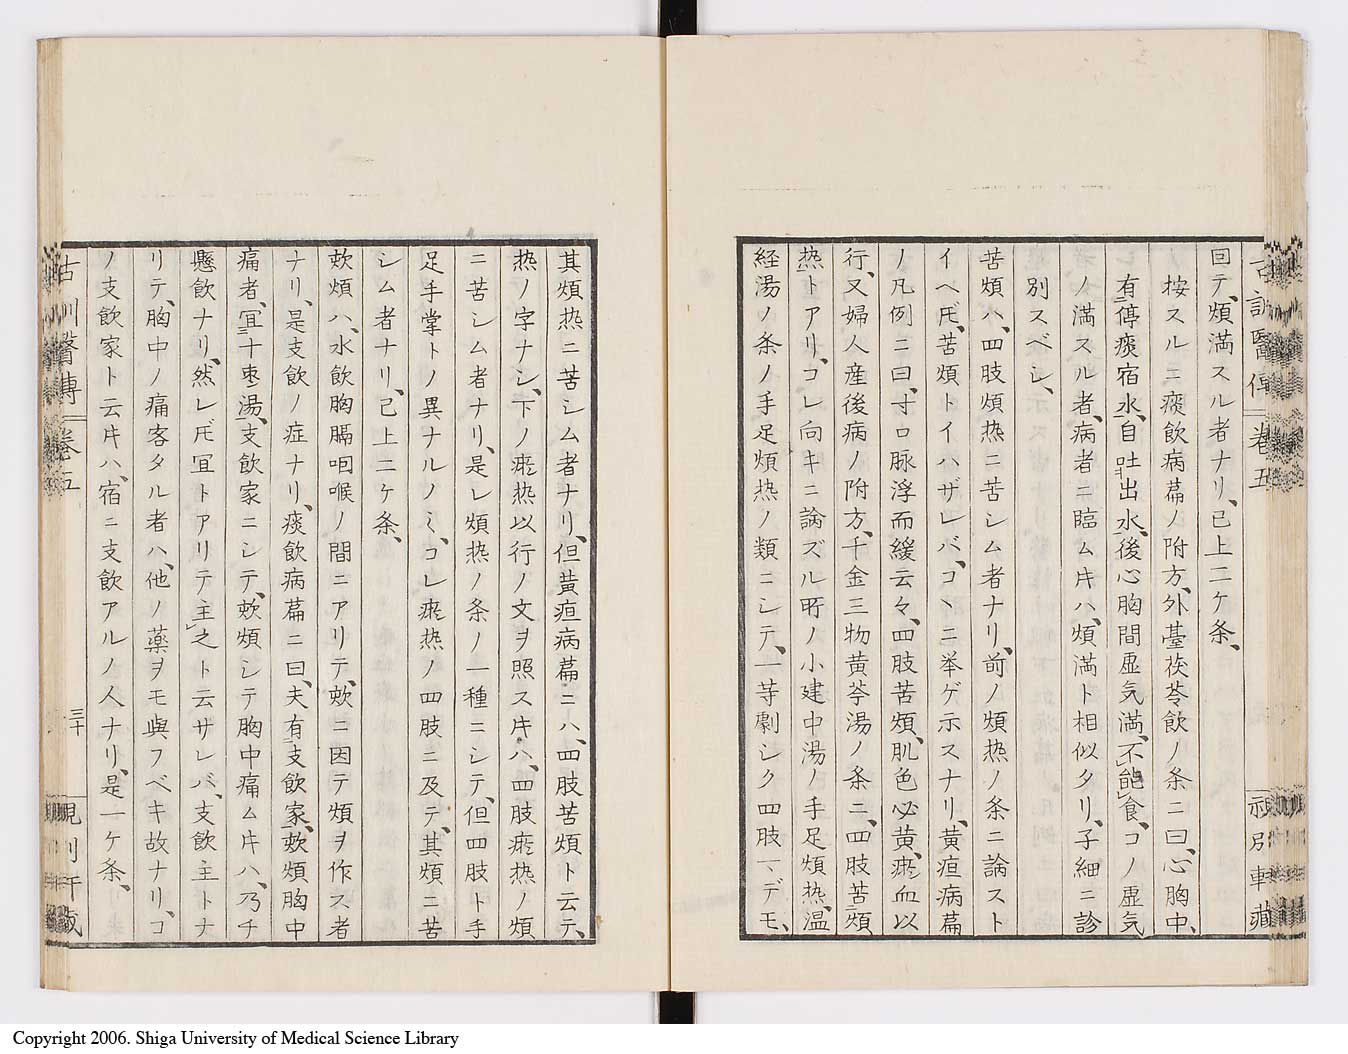 回テ、煩満スル者ナリ、已上二ケ条、
按スルニ痰飲病萹ノ附方、外臺茯苓飲ノ条ニ曰、心胸中、
有停痰宿水、自吐出水、後心胸間虚気満、不能食、コノ虚気
ノ満スル者、病者ニ臨ム𪜈ハ、煩満ト相似タリ、子細ニ診
別スベシ、
苦煩ハ、四肢煩熱ニ苦シム者ナリ、前ノ煩熱ノ条ニ論スト
イヘ𪜈、苦煩トイハザレバ、コヽニ挙ゲ示スナリ、黄疸病萹
ノ凡例ニ曰、寸口脉浮而緩云々、四肢苦煩、肌色必黄、瘀血以
行、又婦人産後病ノ附方、千金三物黄芩湯ノ条ニ、四肢苦煩
热トアリ、コレ向キニ論ズル所ノ小建中湯ノ手足煩热、温
経湯ノ条ノ手足煩热ノ類ニシテ、一等劇シク四肢マデモ、
古訓醫傳 巻五
其煩热ニ苦シム者ナリ、但黄疸病萹ニハ、四肢苦煩ト云テ、
热ノ字ナシ、下ノ瘀热以行ノ文ヲ照ス𪜈ハ、四肢瘀热ノ煩
ニ苦シム者ナリ、是レ煩热ノ条ノ一種ニシテ、但四肢ト手
足手掌トノ異ナルノミ、コレ瘀热ノ四肢ニ及テ、其煩ニ苦
シム者ナリ、已上二ケ条、
欬煩ハ、水飲胸膈咽喉ノ間ニアリテ、欬ニ因テ煩ヲ作ス者
ナリ、是支飲ノ症ナリ、痰飲病萹ニ曰、夫有支飲家、欬煩胸中
痛者、冝十枣湯、支飲家ニシテ、欬煩シテ胸中痛ム𪜈ハ、乃チ
懸飲ナリ、然レ𪜈冝トアリテ主之ト云サレバ、支飲主トナ
リテ、胸中ノ痛客タル者ハ、他ノ薬ヲモ與フベキ故ナリ、コ
ノ支飲家ト云𪜈ハ、宿ニ支飲アルノ人ナリ、是一ケ条、
古訓醫傳 巻五 三十
Copyright 2006. Shiga University of Medical Science Library